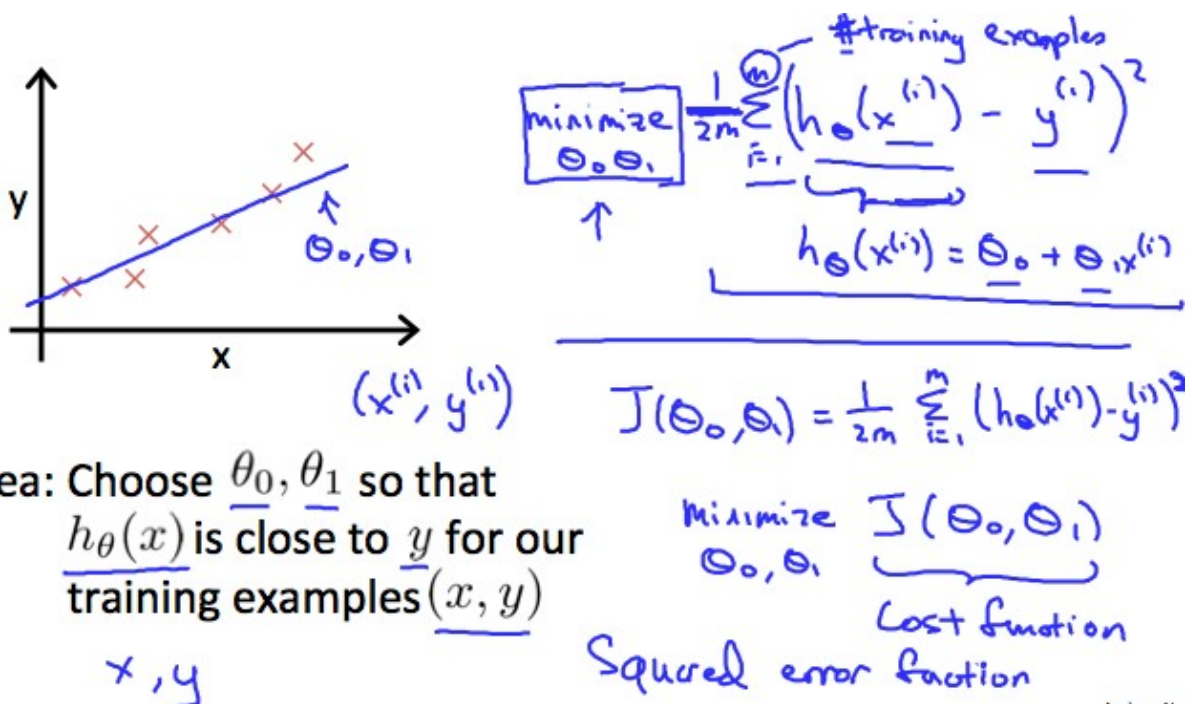 y
x
θ₀, θ₁
(x⁽ⁱ⁾, y⁽ⁱ⁾)
ea: Choose θ₀, θ₁ so that
h_θ(x) is close to y for our
training examples (x, y)
x, y
#training examples
minimize θ₀ θ₁ 1/2m Σᵢ₌₁ᵐ (h_θ(x⁽ⁱ⁾) - y⁽ⁱ⁾)²
h_θ(x⁽ⁱ⁾) = θ₀ + θ₁x⁽ⁱ⁾
J(θ₀, θ₁) = 1/2m Σᵢ₌₁ᵐ (h_θ(x⁽ⁱ⁾) - y⁽ⁱ⁾)²
minimize J(θ₀, θ₁)
θ₀, θ₁
Cost function
Squared error faction